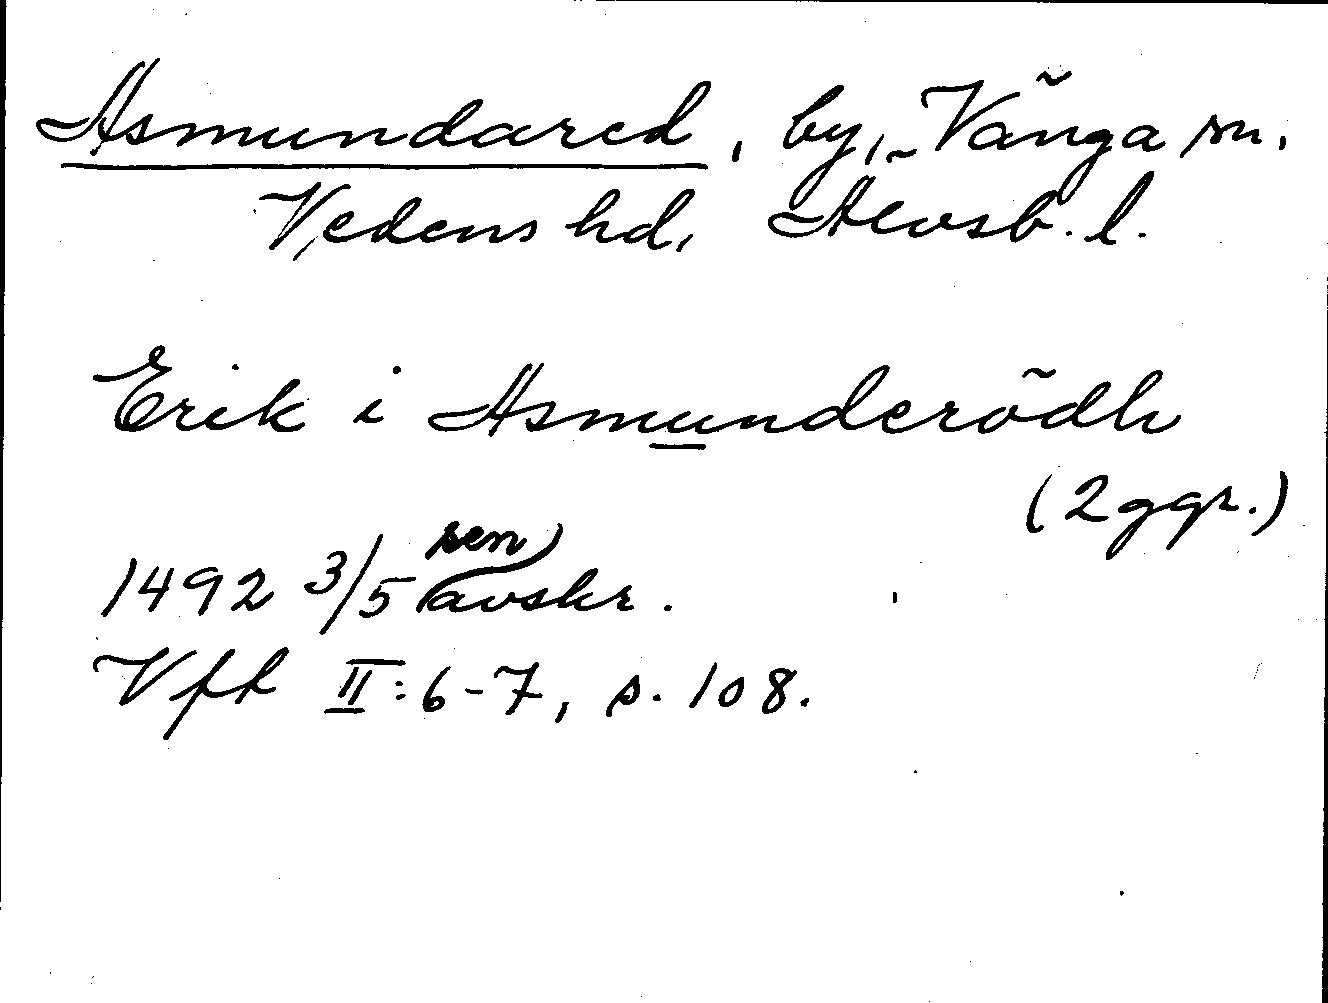 Asmundared, by, Vänga sn,
Vedens hd, Älvsb. l.
Erik i Asmunderödh
(2 ggr.)
1492 3/5 sen avskr.
Vfh II: 6-7, s. 108.